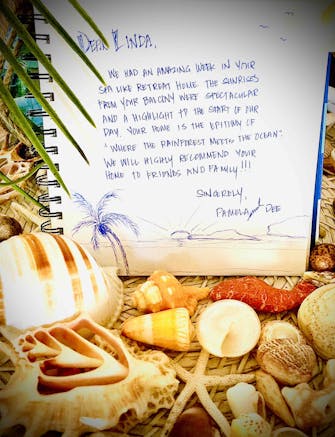 Dear Linda,
We had an amazing week in your
spa like retreat home. The sunrises
from your balcony were spectacular
and a highlight to the start of our
day. Your home is the epitomy of
"Where the rainforest meets the ocean".
We will highly recommend your
home to friends and family!!!
Sincerely,
Pamela and Dee